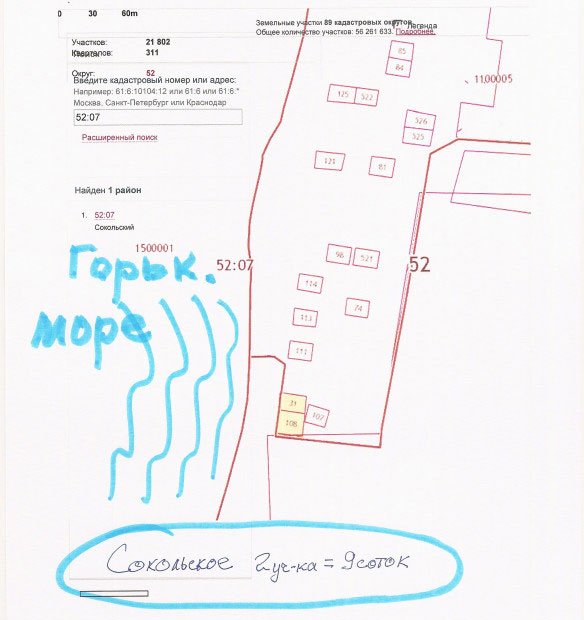 0 30 60m
Земельные участки 89 кадастровых округов
Общее количество участков: 56 261 633. Подробнее.
Легенда
Участков: 21 802
Кварталов: 311
Округ: 52
Введите кадастровый номер или адрес:
Например: 61:6:10104:12 или 61:6 или 61:6:*
Москва, Санкт-Петербург или Краснодар
52:07
Расширенный поиск
Найден 1 район
1. 52:07
Сокольский
85
84
1100005
125 522
526
525
121
81
1500001
52:07
98 521
52
114
74
113
111
31
108
107
Горьк.
море
Сокольское 2уч-ка = 9соток